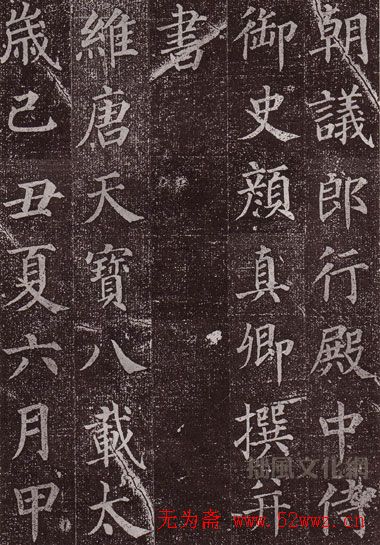 朝議郎行殿中侍
御史顔真卿撰并
書
維唐天寶八載太
歲己丑夏六月甲
无为斋 www.52wwz.cn